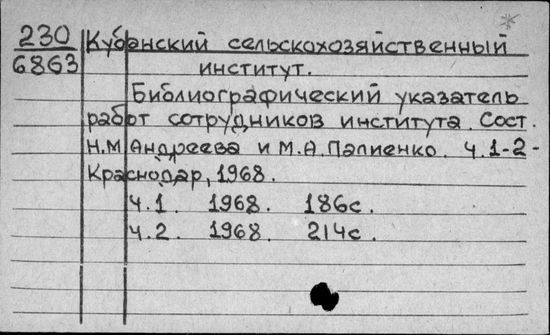 230 Кубанский сельскохозяйственный
6863 институт.
Библиографический указатель
работ сотрудников института. Сост.
Н.М Андреева и М.А.Палиенко. ч.1-2-
Краснодар, 1968.
ч.1. 1968. 186с.
ч.2. 1968. 214с.